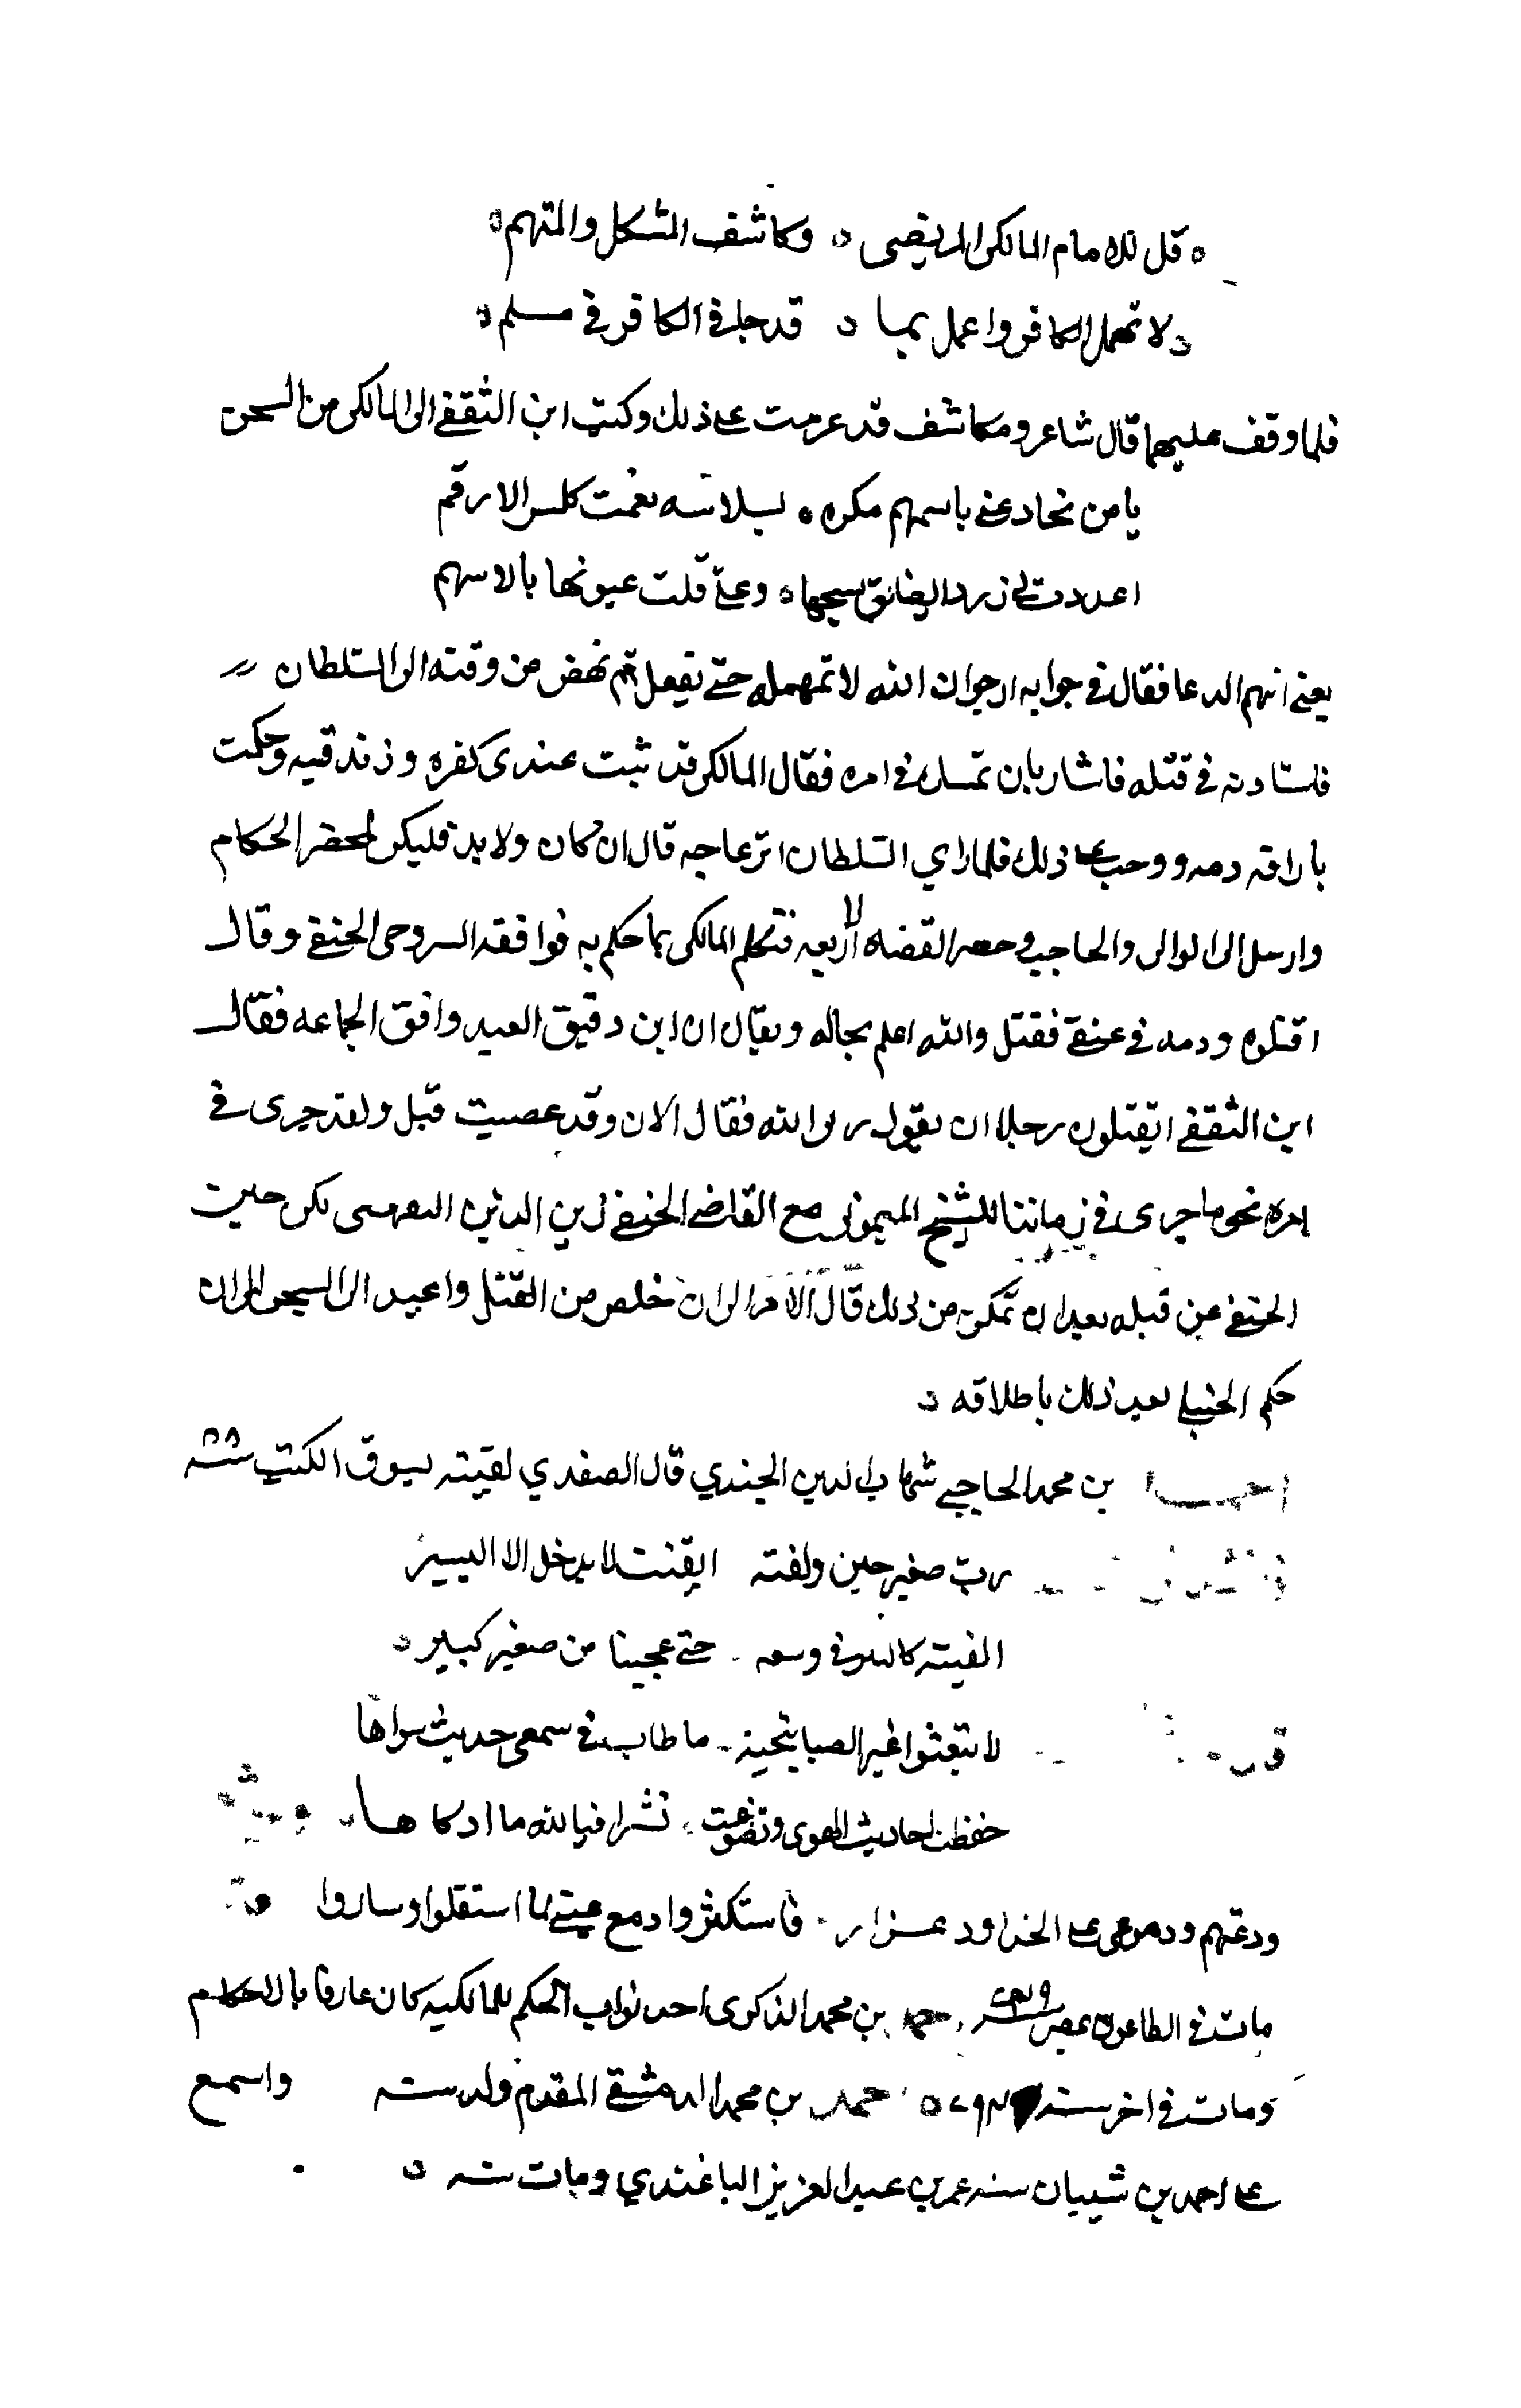 قل للامام المالكي المرتضى ه وكاشف المشكل والمبهم ه
لا تمهل الكافر واعمل بما ه قد جا في الكافر في مسلم ه
فلما وقف عليهما قال شاعر ومكاشف قد عزمت على ذلك وكتب ابن الثقفي الى المالكي من السجن
يا من يخادعني باسهم مكره ه بسلاسه نعمت كلمس الارقم
اعددت لي زرد تضايق نسجها ه وعلي فكت عيونها بالاسهم
يعني اسهم الدعا فقال في جوابه ارجو ان الله لا تمهمله حتى يفعل ثم نهض من وقته الى السلطان
فاستادنه في قتله فاشار بان تمسك في امره فقال المالكي قد ثبت عندي كفره وزندقته وحكمت
باراقه دمه ووجب على ذلك فلما راي السلطان انزعاجه قال ان كان ولا بد فليكن بمحضر الحكام
وارسل الى الوالي والحاجب وحضر القضاه الاربعه فتكلم المالكي بما حكم به فوافقه السروجي الحنفي وقال
اقتلوه ودمه في عنقي فقتل والله اعلم بحاله ويقال ان ابن دقيق العيد وافق الجماعه فقال
ابن الثقفي اتقتلون رجلا ان يقول ربي الله فقال الان وقد عصيت قبل ولقد جرى في
امره نحو ما جرى في زماننا للشيخ الميموني مع القاضي الحنفي زين الدين التفهني لكن حلت
الحنفي عن قبله بعد ان تمكن من ذلك قال الامر الى ان خلص من القتل واعيد الى السجن الى ان
حكم الحنبلي بعد ذلك باطلاقه ه
احمد بن محمد الحاجبي شهاب الدين الجندي قال الصفدي لقيته بسوق الكتب سنه
رب صغير حين ولفته ايقنت لا يدخل الا اليسير
الفيته كالبير في وسعه حتى عجبنا من صغير كبير ه
لا تبعثوا غير الصبا بتحية ما طاب في سمعي حديث سواها
حفظت احاديث الهوى وتضوعت نشرا فيا لله ما ادكاها
ودعتهم ودموعي على الخدود غزار فاستكثروا دمع عيني لما استقلوا وساروا
مات في الطاعون بمصر سنه ٧٤٩ احمد بن محمد الذكري احد نواب الحكم للمالكيه كان عارفا بالاحكام
ومات في اخر سنه احمد بن محمد الدمشقي المقدم ولد سنه واسمع
على احمد بن شيبان عمر بن عبد العزيز الباغندي ومات سنه ه